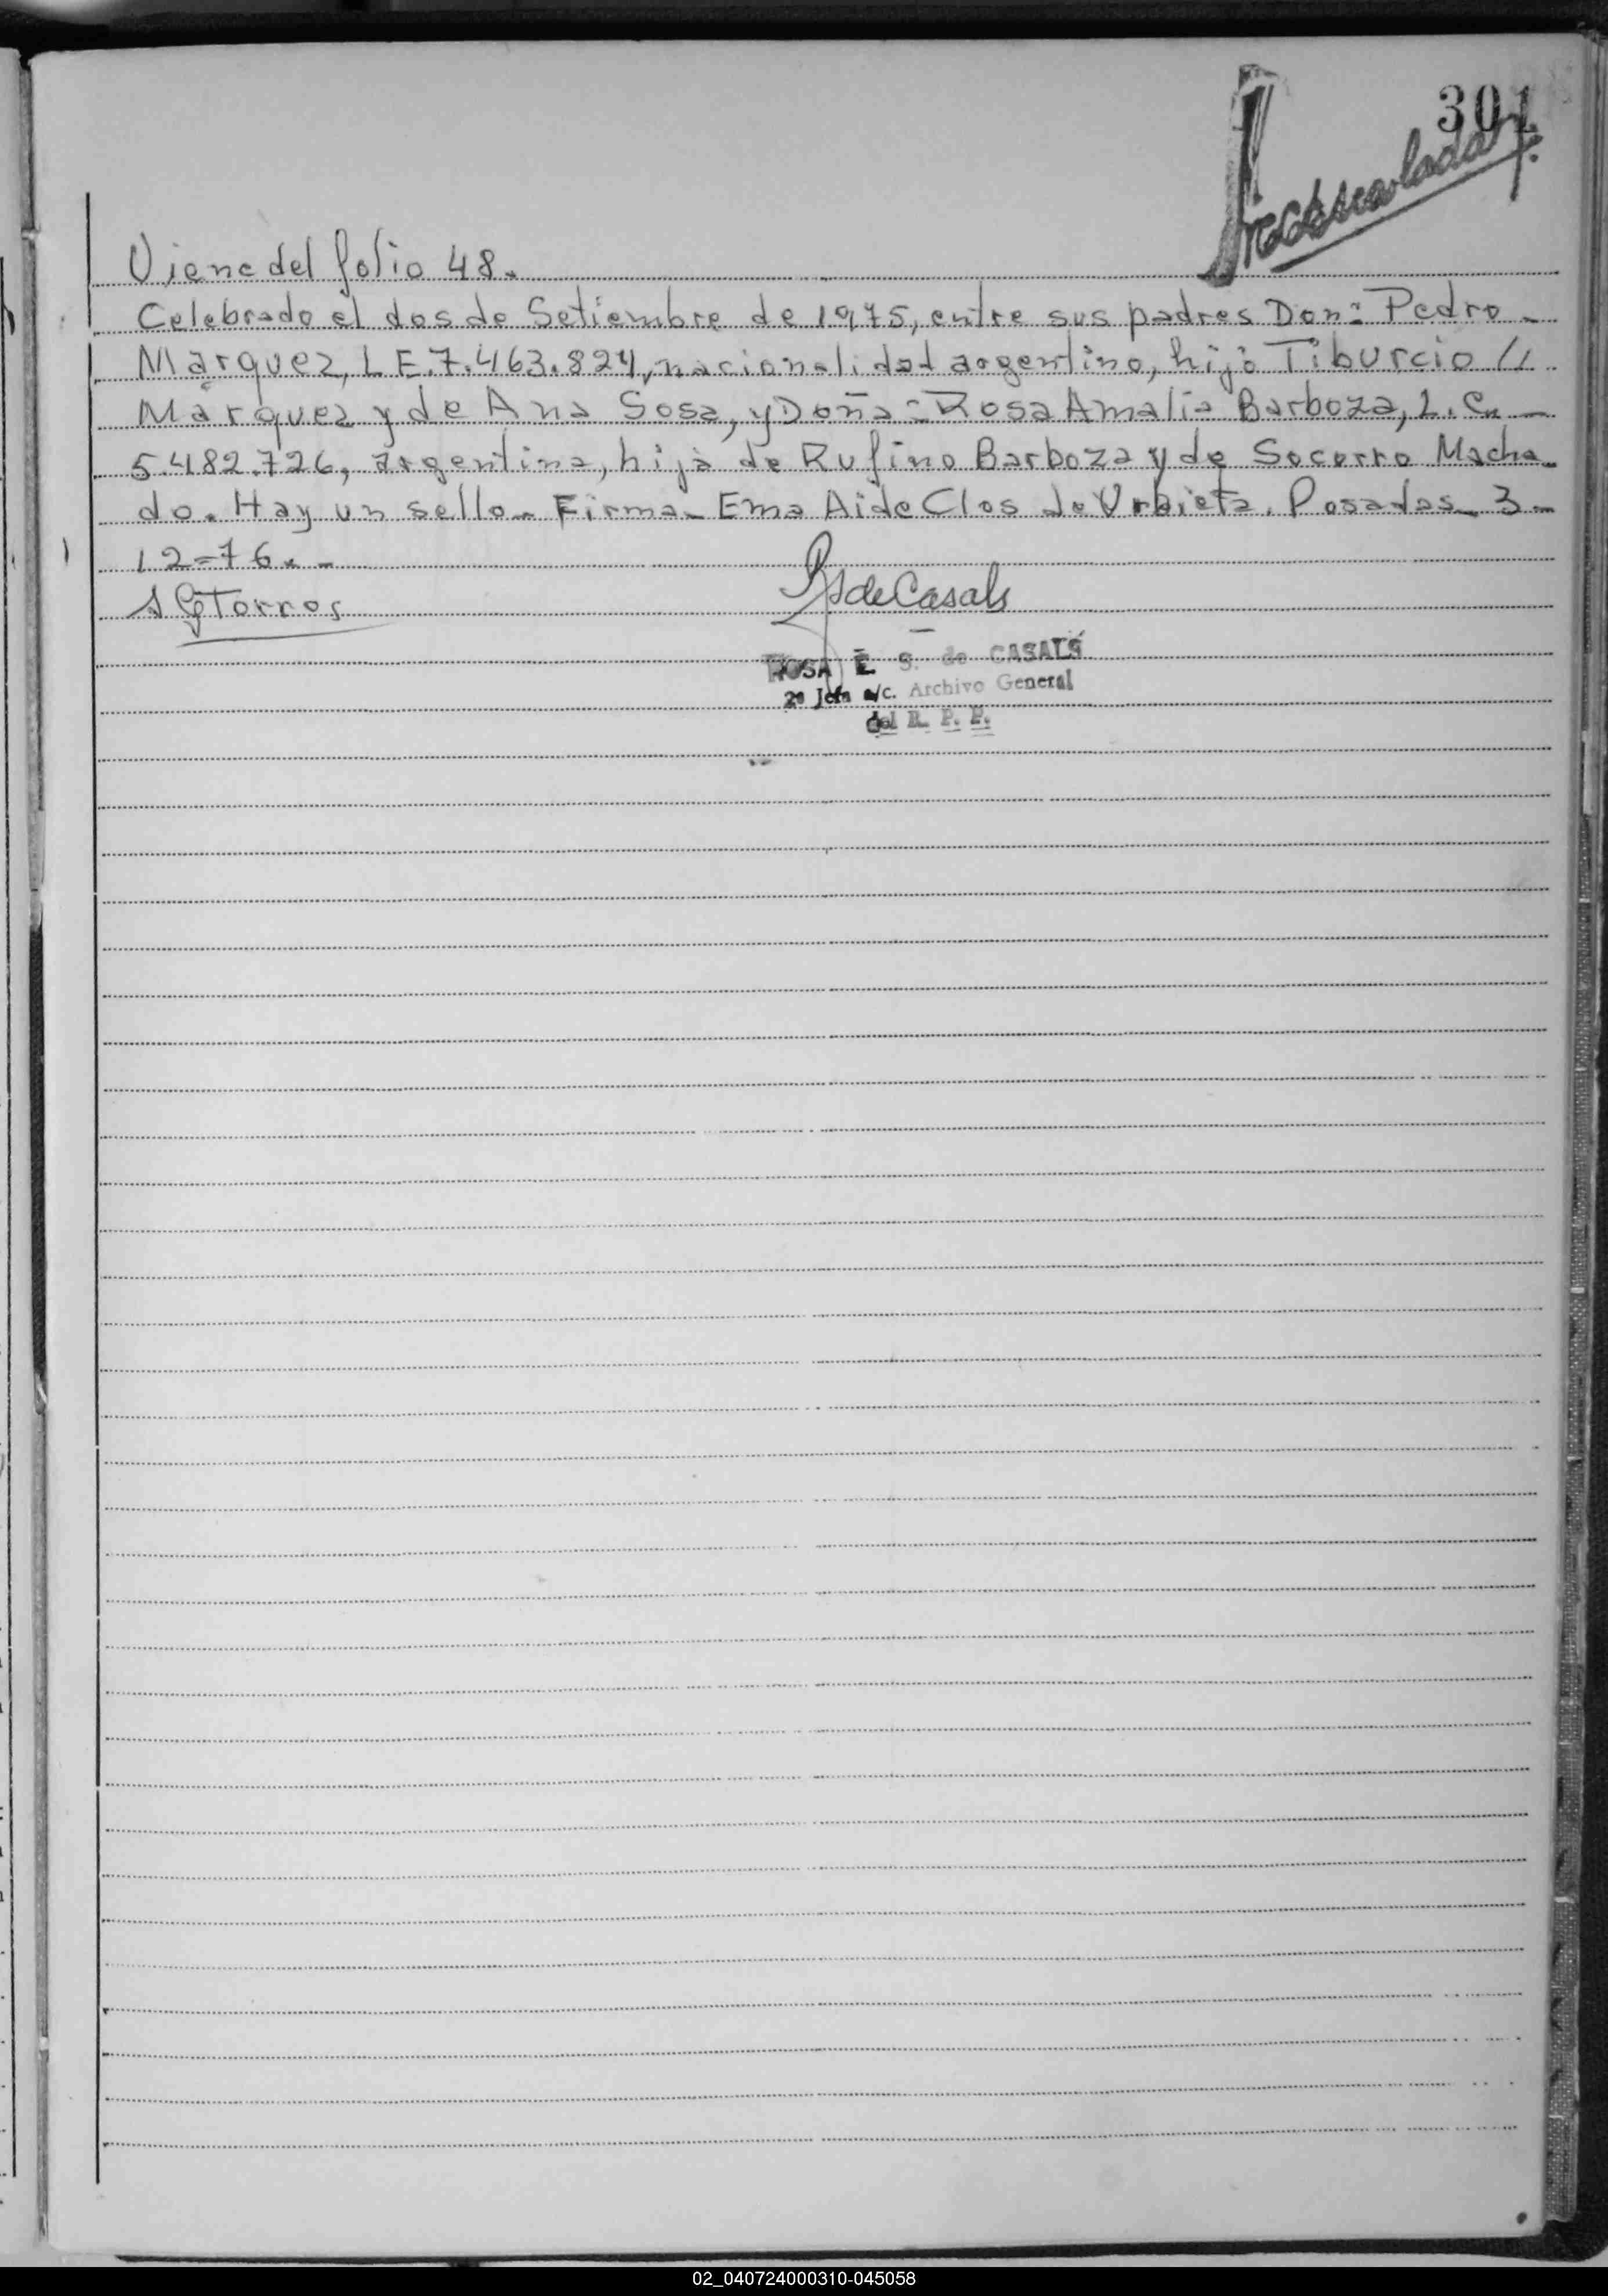 301
Viene del folio 48.
Celebrado el dos de Setiembre de 1975, entre sus padres Don: Pedro -
Marquez, L E. 7.463.824, nacionalidad argentino, hijo Tiburcio //
Marquez y de Ana Sosa, y Doña: Rosa Amalia Barboza, L. C. -
5.482.726, argentina, hija de Rufino Barboza y de Socorro Macha-
do. Hay un sello. Firma- Ema Aide Clos de Urbieta. Posadas- 3-
12=76. -
Torres
de Casals
ROSA E. S. de CASALS
2ª Jefa a/c. Archivo General
del R. P. P.
02_040724000310-045058